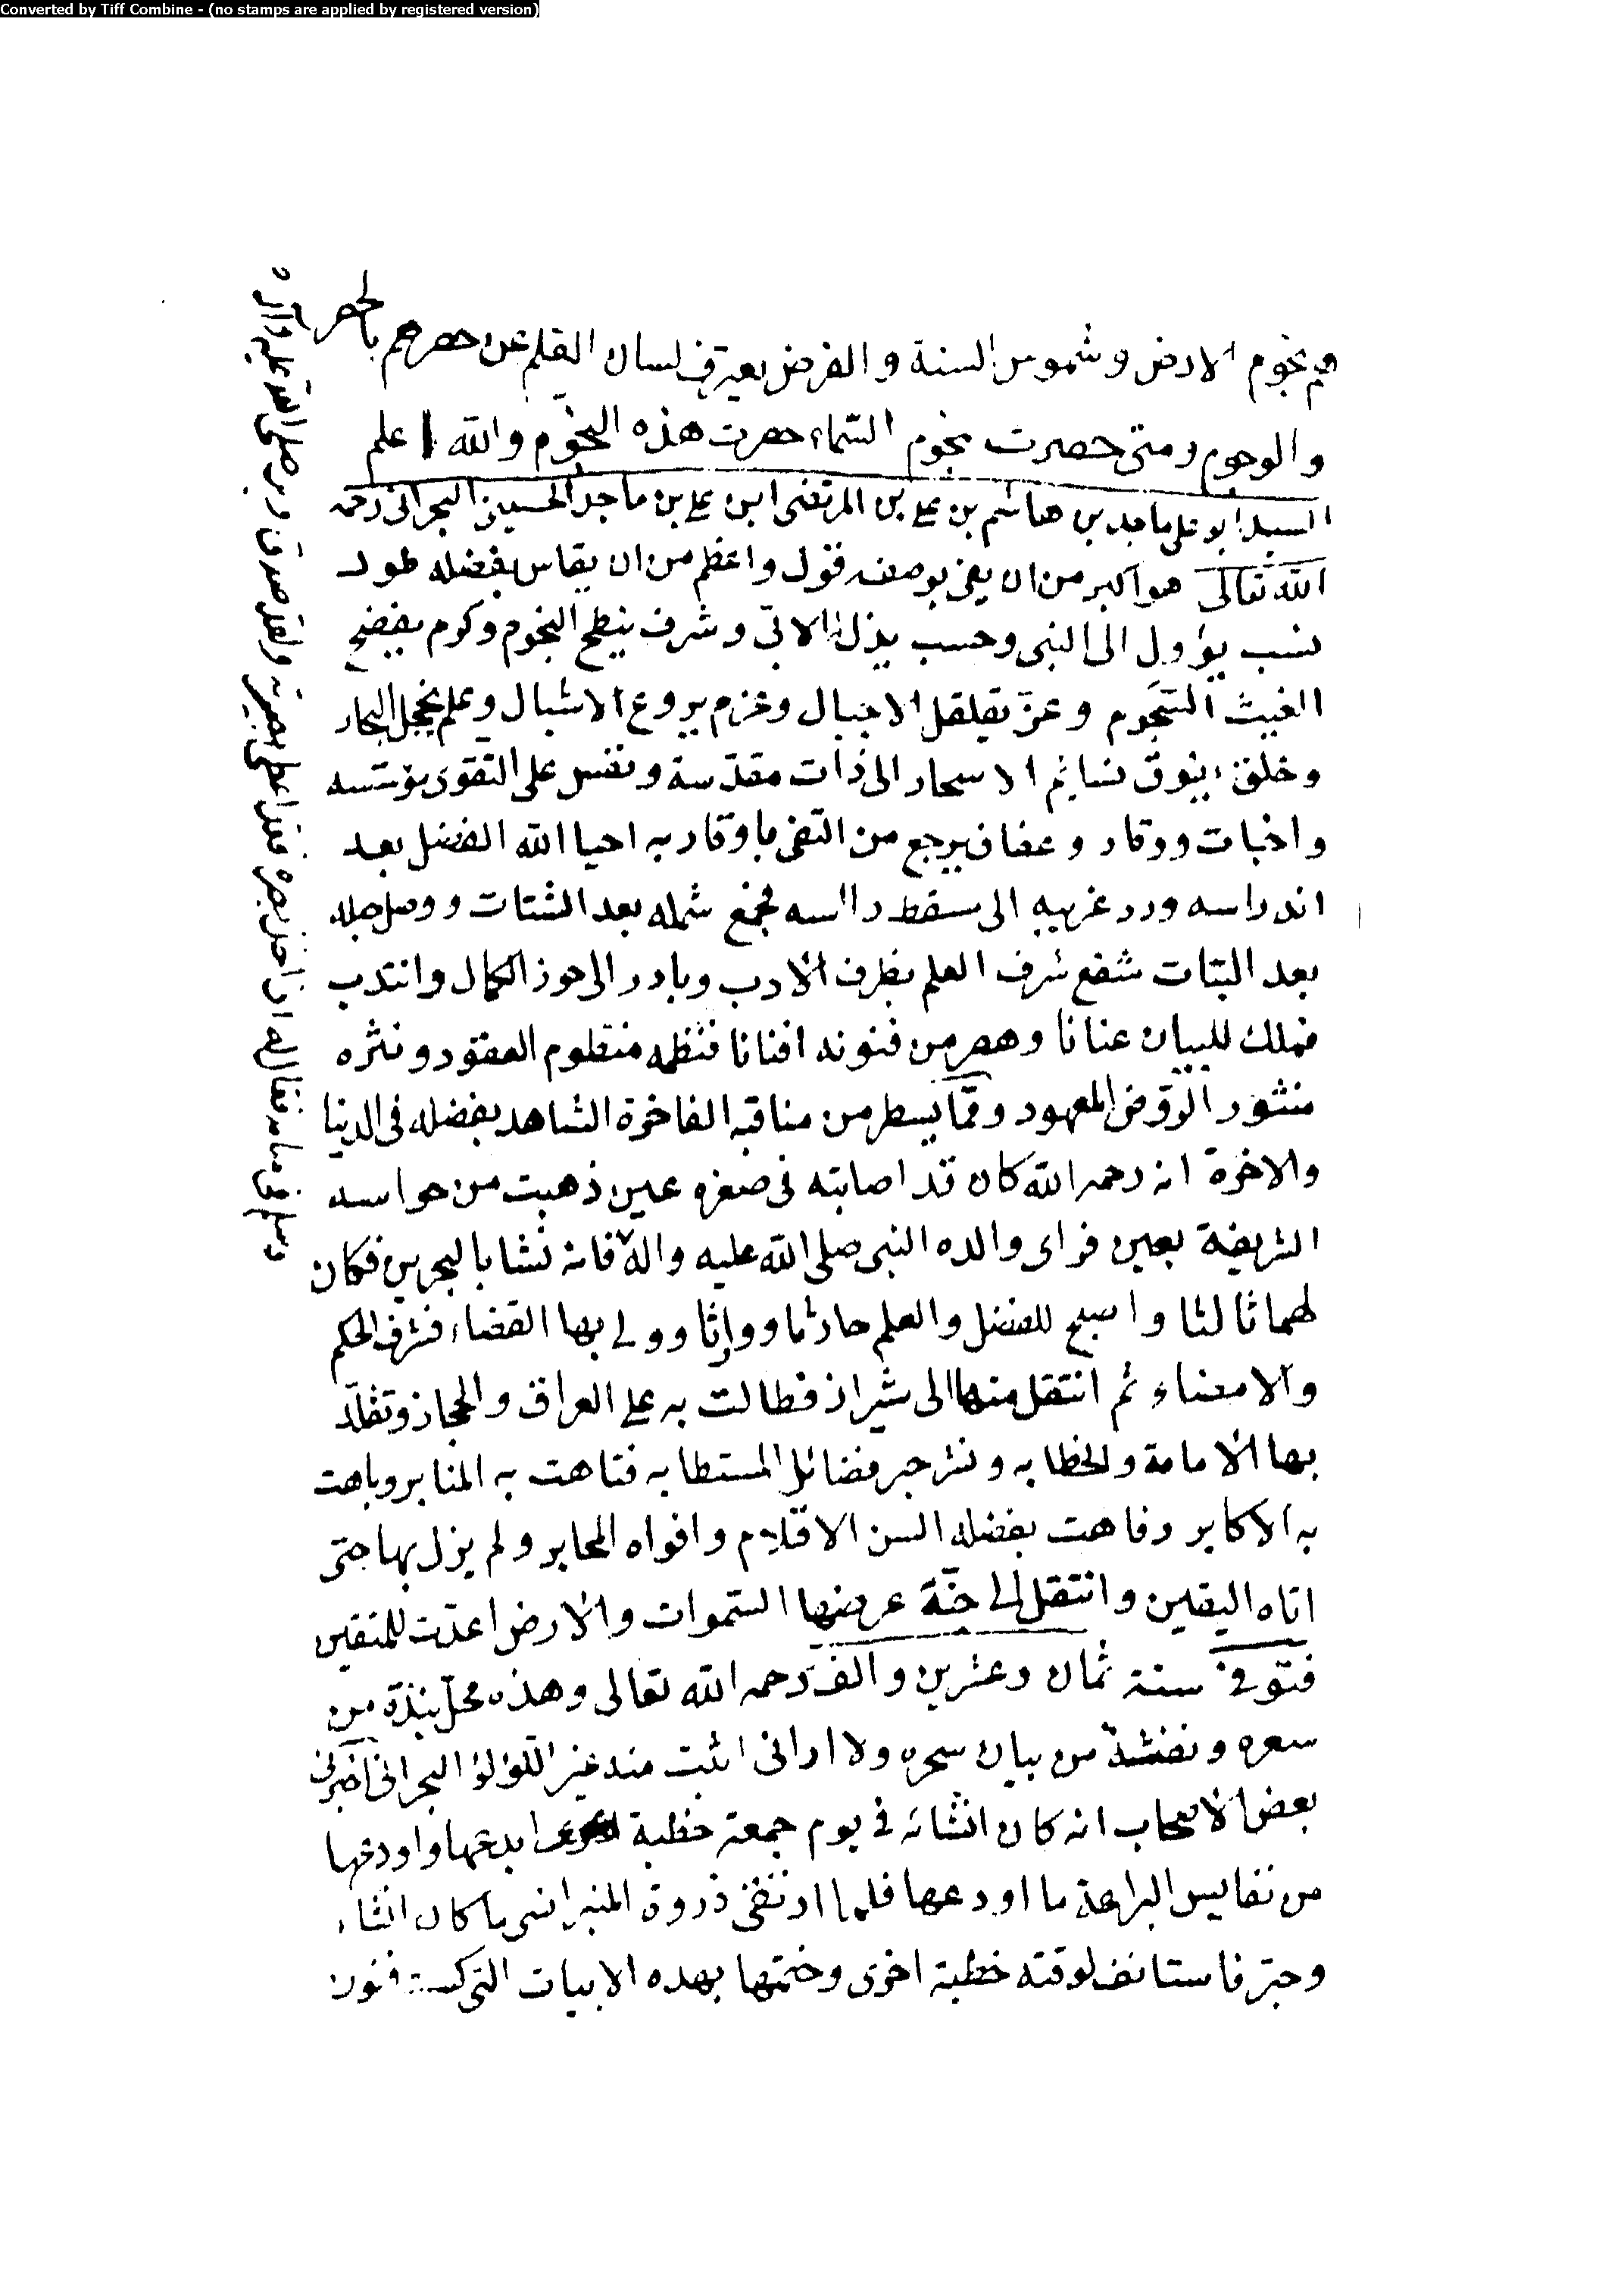 Converted by Tiff Combine - (no stamps are applied by registered version)
هم نجوم الارض وشموس السنة والفرض يعترف لسان القلم عن حصرهم بالحصر
والوجوم ومتى حصرت نجوم السماء حصرت هذه النجوم والله اعلم
السيد ابو على ماجد بن هاشم بن على بن المرتضى ابن على بن ماجد الحسينى البحرانى رحمه
الله تعالى هو اكبر من ان يفى بوصفه قول واعظم من ان يقاس بفضله طود
نسب يؤول الى النبى وحسب يذل له الابى وشرف ينطح النجوم وكرم يفضح
الغيث السجوم وعز يقلقل الاجبال وعزم يروع الاشبال وعلم يخجل البحار
وخلق يفوق نسايم الاسحار الى ذات مقدسة ونفس على التقوى مؤسسه
واخبات ووقار وعفاف يرجع من التقى باوقار به احيا الله الفضل بعد
اندراسه ورد غريبه الى مسقط راسه فجمع شمله بعد الشتات ووصل حبله
بعد البتات شفع شرف العلم بظرف الادب وبادر الى حوز الكمال وانتدب
فملك للبيان عنانا وهصر من فنونه افنانا فنظمه منظوم العقود ونثره
منثور الروض المعهود ومما يسطر من مناقبه الفاخرة الشاهد بفضله فى الدنيا
والاخرة انه رحمه الله كان قد اصابته فى صغره عين ذهبت من حواسه
الشريفة بعين فراى والده النبى صلى الله عليه واله فانه نشا بالبحرين فكان
لهما ثالثا واصبح للفضل والعلم حارثا ووارثا وولى بها القضاء فشرف الحكم
والامضاء ثم انتقل منها الى شيراز فطالت به على العراق والحجاز وتقلد
بها الامامة والخطابه ونشر حبر فضائله المستطابه فتاهت به المنابر وباهت
به الاكابر وفاهت بفضله السن الاقلام وافواه المحابر ولم يزل بها حتى
اتاه اليقين وانتقل الى جنة عرضها السموات والارض اعدت للمتقين
فتوفى سنة ثمان وعشرين والف رحمه الله تعالى وهذه محل نبذة من
سعره ونفثة من بيان سحره ولا ارانى اثبت منه غير اللؤلؤ البحرانى اخبرنى
بعض الاصحاب انه كان انشائه فى يوم جمعة خطبة ابدعها واودعها
من نفايس البراعة ما اودعها فلما ارتقى ذروة المنبر انسى ما كان انشاء
وحبر فاستانف لوقته خطبة اخرى وختمها بهذه الابيات التى كست فنون
فى منامه فقال له ان اخذ بصره فقد اعطى بصيرته ولقد صدق وبر صلى الله عليه واله